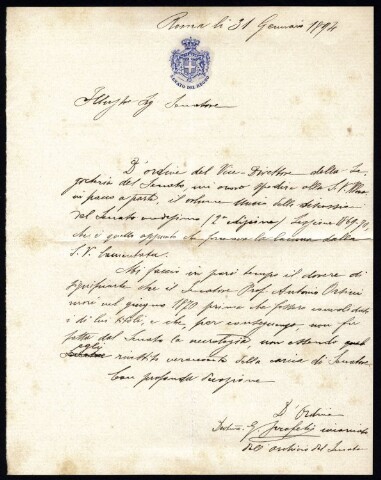 Roma li 31 Gennaio 1894
SENATO DEL REGNO
Illustre Sig Senatore
D'ordine del Vice-Direttore della Se-
greteria del Senato, mi onoro spedire alla S.V. Illma
in pacco a parte, il volume delle discussioni
del Senato (2ª edizione) Legisne 1869-70,
che è quello appunto che la lacuna dalla
S. V. lamentata.
Mi faccio in pari tempo il dovere di
significarle che il Senatore Prof. Antonio Orsini
morì nel giugno 1870 prima che fossero convalidati
i di lui titoli, e che, per conseguenza, non fu
fatta dal Senato la necrologia, non essendo
egli rivestito veramente della carica di Senatore.
Con profonda devozione
D'Ordine
G. incaricato
dell'archivio del Senato